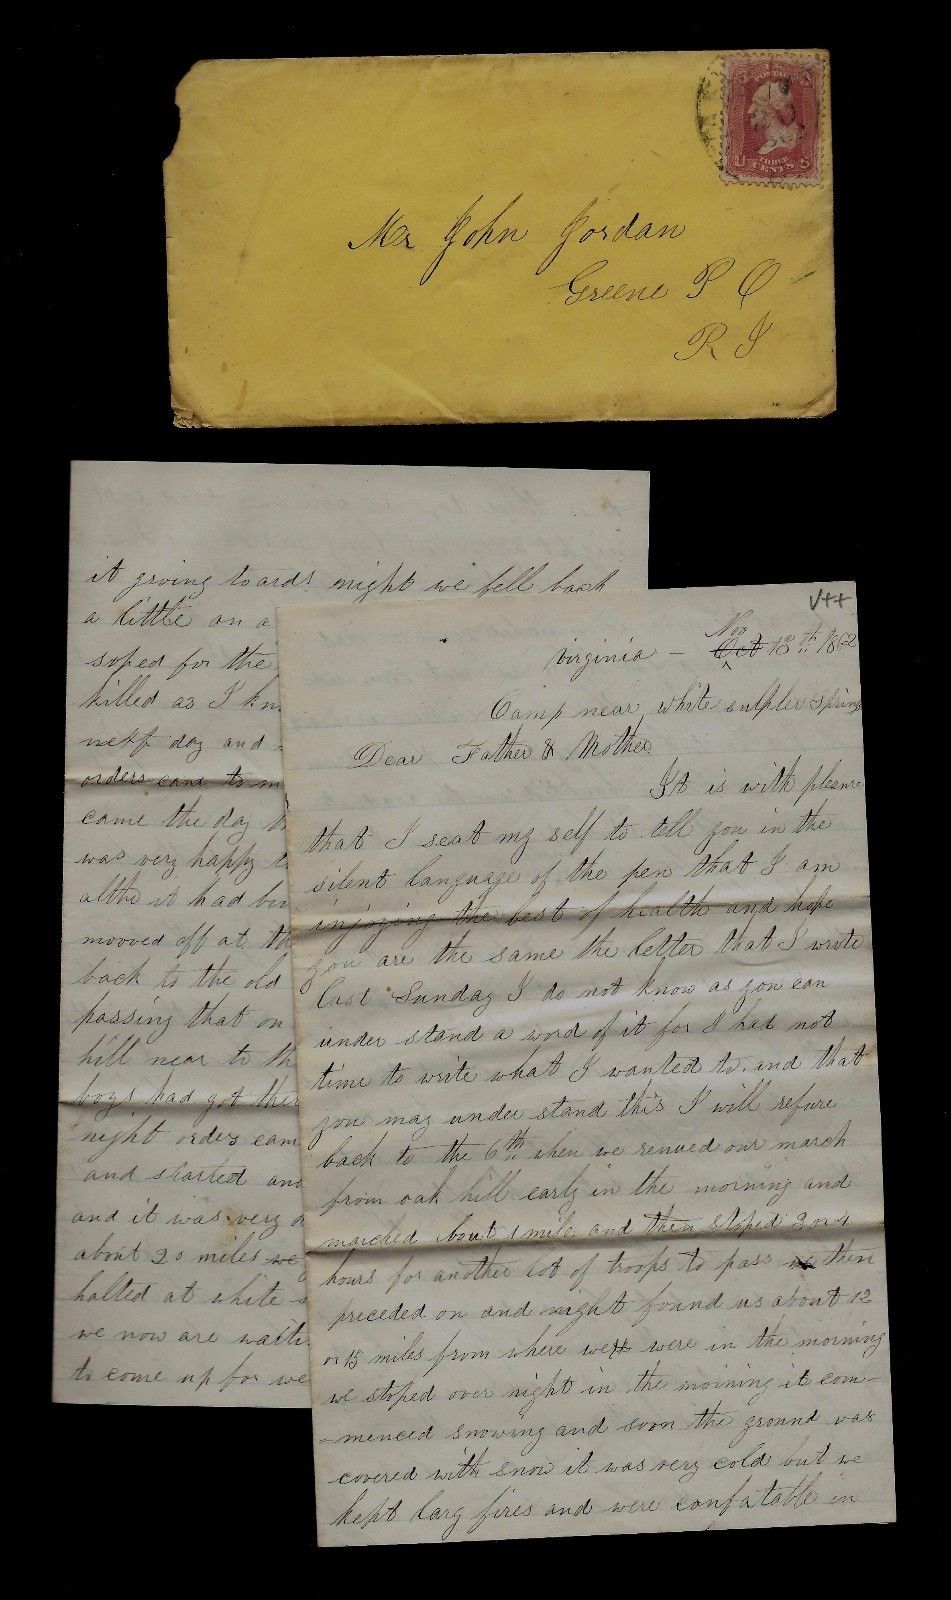 Mr John Jordan
Greene P O
R I
THREE
CENTS
it groing toards night we fell back
a little on a
soped for the
killed as I kn
next day and
orders came to m
came the day
was very happy
altho it had be
mooved off at th
back to the old
passing that on
hill near to th
boys had got thei
night orders cam
and started and
and it was very
about 20 miles we
halted at white
we now are waiti
to come up for we
V++
Nov
Virginia - Oct 13th 1862
Camp near white sulpher spring
Dear Father & Mother
It is with plesure
that I seat my self to tell you in the
silent language of the pen that I am
injoying the best of health and hope
you are the same the letter that I write
last Sunday I do not know as you can
under stand a word of it for I had not
time to write what I wanted to and that
you may under stand this I will refure
back to the 6th when we renued our march
from oak hill early in the morning and
marched bout 1 mile and then stoped 3 or 4
hours for another lot of troops to pass us then
preceded on and night found us about 12
or 15 miles from where we were in the morning
we stoped over night in the morning it com-
-menced snowing and soon the ground was
covered with snow it was very cold but we
kept larg fires and were confatable in